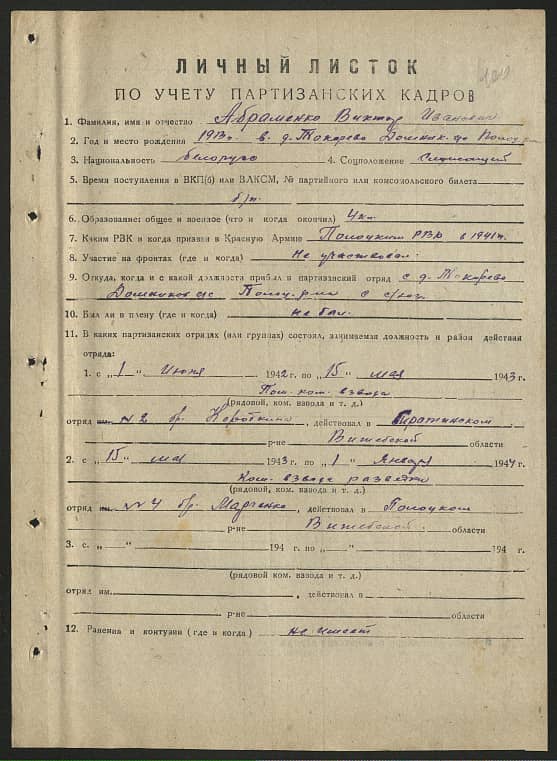 ЛИЧНЫЙ ЛИСТОК
ПО УЧЕТУ ПАРТИЗАНСКИХ КАДРОВ
1. Фамилия, имя и отчество Абраменко Виктор Иванович
2. Год и место рождения 1913г. в. д. Токарево
3. Национальность белорус 4. Соцположение Служащий
5. Время поступления в ВКП(б) или ВЛКСМ, № партийного или комсомольского билета
б/п.
6. Образование: общее и военное (что и когда окончил) 4 кл.
7. Каким РВК и когда призван в Красную Армию Полоцким РВК в 1941г.
8. Участие на фронтах (где и когда) Не участвовал.
9. Откуда, когда и с какой должности прибыл в партизанский отряд с д. Токарево
10. Был ли в плену (где и когда) не был.
11. В каких партизанских отрядах (или группах) состоял, занимаемая должность и район действий
отряда:
1. с „1" Июня 1942 г. по „15" мая 1943 г.
Пом. ком. взвода
(рядовой, ком. взвода и т. д.)
отряд № 2 бр. Короткина, действовал в
р-не Витебской области
2. с „15" мая 1943 г. по „1" Января 1944 г.
Ком. взвода разведки
(рядовой, ком. взвода и т. д.)
отряд № 4 бр. Марченко, действовал в Полоцком
р-не Витебской области
3. с „ " 194 г. по „ " 194 г.
(рядовой ком. взвода и т. д.)
отряд им. , действовал в
р-не области
12. Ранения и контузии (где и когда) не имеет